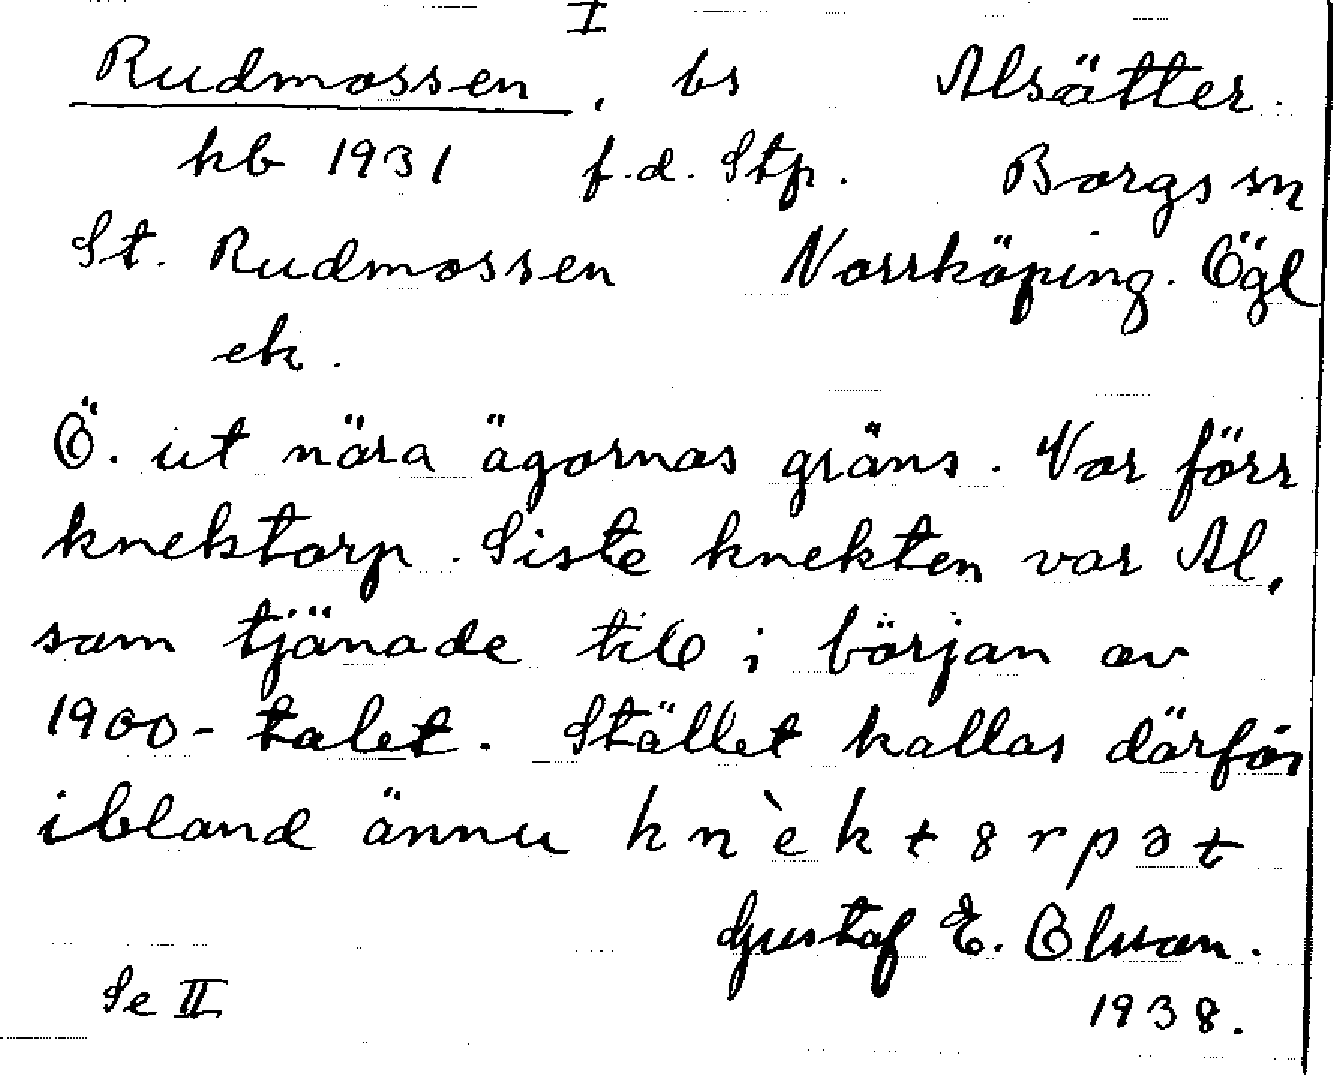 I
Rudmossen, bs Alsätter.
kb 1931 f.d. Stp. Borgs sn
St. Rudmossen Norrköping. Ögl
ek.
Ö. ut nära ägornas gräns. Var förr
knektorp. Siste knekten var Al,
som tjänade till i början av
1900-talet. Stället kallas därför
ibland ännu knèkt8rpət
Gustaf E. Olsson.
Se II 1938.